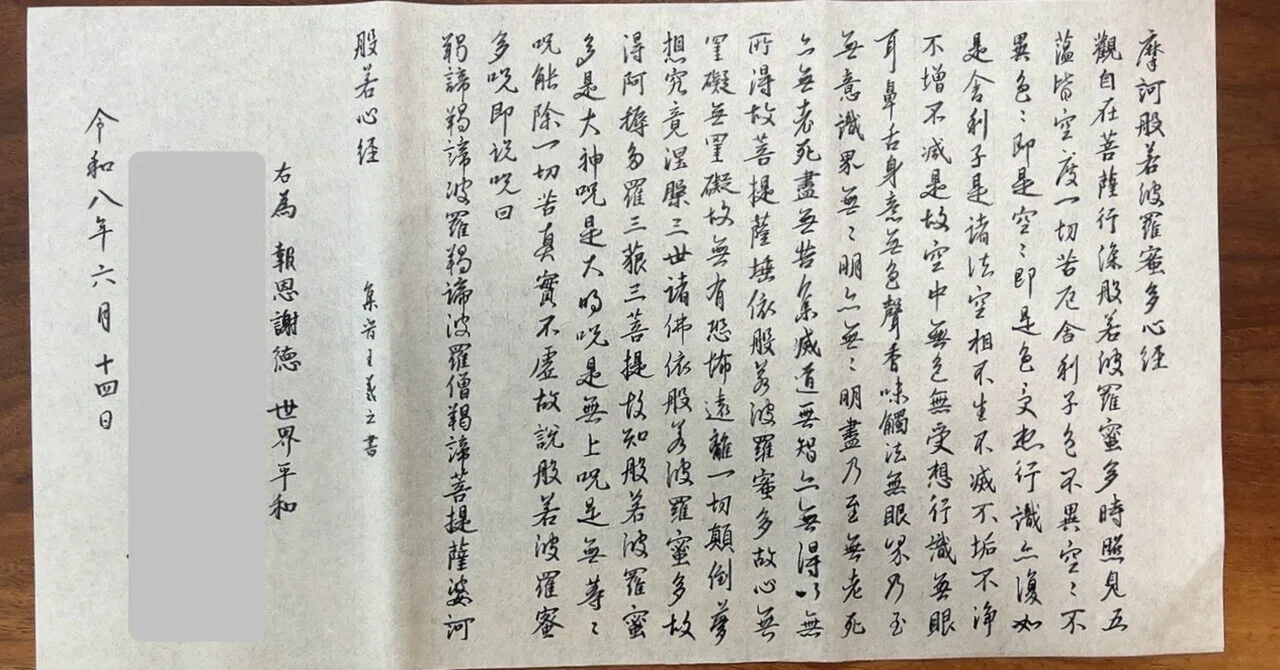 摩訶般若波羅蜜多心経
觀自在菩薩行深般若波羅蜜多時照見五
蘊皆空度一切苦厄舍利子色不異空〻不
異色〻即是空〻即是色受想行識亦復如
是舍利子是諸法空相不生不滅不垢不浄
不增不減是故空中無色無受想行識無眼
耳鼻舌身意無色聲香味觸法無眼界乃至
無意識界無〻明亦無〻明盡乃至無老死
亦無老死盡無苦集滅道無智亦無得以無
所得故菩提薩埵依般若波羅蜜多故心無
罣礙無罣礙故無有恐怖遠離一切顛倒夢
想究竟涅槃三世諸佛依般若波羅蜜多故
得阿耨多羅三藐三菩提故知般若波羅蜜
多是大神呪是大明呪是無上呪是無等〻
呪能除一切苦真實不虛故說般若波羅蜜
多呪即説呪曰
羯諦羯諦波羅羯諦波羅僧羯諦菩提薩婆訶
般若心経
集晋王羲之書
右為 報恩謝德 世界平和
令和八年六月十四日